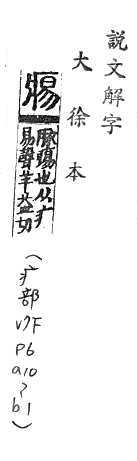 說文解字
大徐本
痬
脈痬也从疒
易聲羊益切
(疒部 V7F P6 a10~b1)